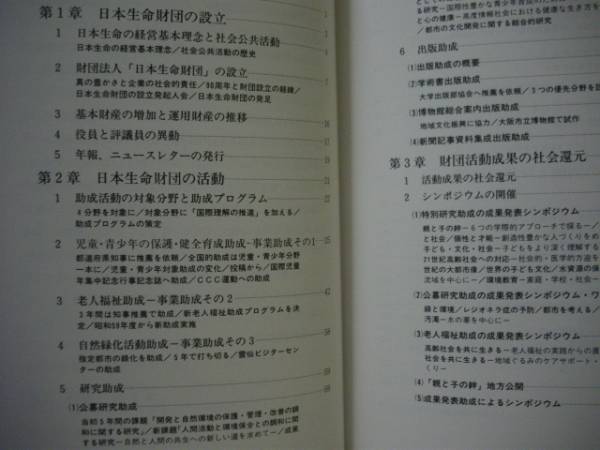 第1章　日本生命財団の設立
1　日本生命の経営基本理念と社会公共活動
日本生命の経営基本理念／社会公共活動の歴史
2　財団法人「日本生命財団」の設立
真の豊かさと企業の社会的責任／90周年と財団設立の経緯／
日本生命財団の設立発起人会／日本生命財団の発足
3　基本財産の増加と運用財産の推移
4　役員と評議員の異動
5　年報、ニュースレターの発行
第2章　日本生命財団の活動
1　助成活動の対象分野と助成プログラム
4分野を対象に／対象分野に「国際理解の推進」を加える／
助成プログラムの策定
2　児童・青少年の保護・健全育成助成−事業助成その1
都道府県知事に推薦を依頼／全国的助成は児童・青少年分野
一本に／児童・青少年対象助成の変化／投稿から／国際児童
年集中記念行事記念誌／CCC運動への助成
3　老人福祉助成−事業助成その2
3年間は知事推薦で助成／新老人福祉助成プログラムを決
定／昭和59年度から新助成実施
4　自然緑化活動助成−事業助成その3
指定都市の緑化を助成／5年で打ち切る／雲仙ビジターセン
ターの助成
5　研究助成
(1)公募研究助成
当初5年間の課題「開発と自然環境の保護・管理・改善の調
和に関する研究」／新課題「人間活動と環境保全との調和に関
する研究−自然と人間の共生への新しい道を求めて−／成果
と心の健康−高度情報社会における健康な生き方を
／都市の文化開発に関する総合的研究
6　出版助成
(1)出版助成の概要
(2)学術書出版助成
大学出版部協会へ推薦を依頼／3つの優先分野を設
(3)博物館総合案内出版助成
地域文化振興に協力／大阪市立博物館で試作
(4)新聞記事資料集成出版助成
第3章　財団活動成果の社会還元
1　活動成果の社会還元
2　シンポジウムの開催
(1)特別研究助成の成果発表シンポジウム
親と子の絆−6つの学際的アプローチで探る−／
と社会／個性と才能−創造性豊かな人づくりをめ
子ども・文化・社会−子どもをより深く理解する
21世紀高齢社会への対応−社会的・医学的方面を
世紀の大都市像／世界の子ども文化／水資源の保
域水を中心に−／環境教育−家庭・学校・社会−
(2)公募研究助成の成果発表シンポジウム・ワ
緑と環境／レジオネラ症の予防／都市を考える／
汚濁−水の華を中心に−
(3)老人福祉助成の成果発表シンポジウム
高齢社会を共に生きる−老人福祉の実践からの提
社会を共に生きる−地域ぐるみのケアサポート・
くり−
(4)「親と子の絆」地方公開
(5)成果発表助成によるシンポジウム